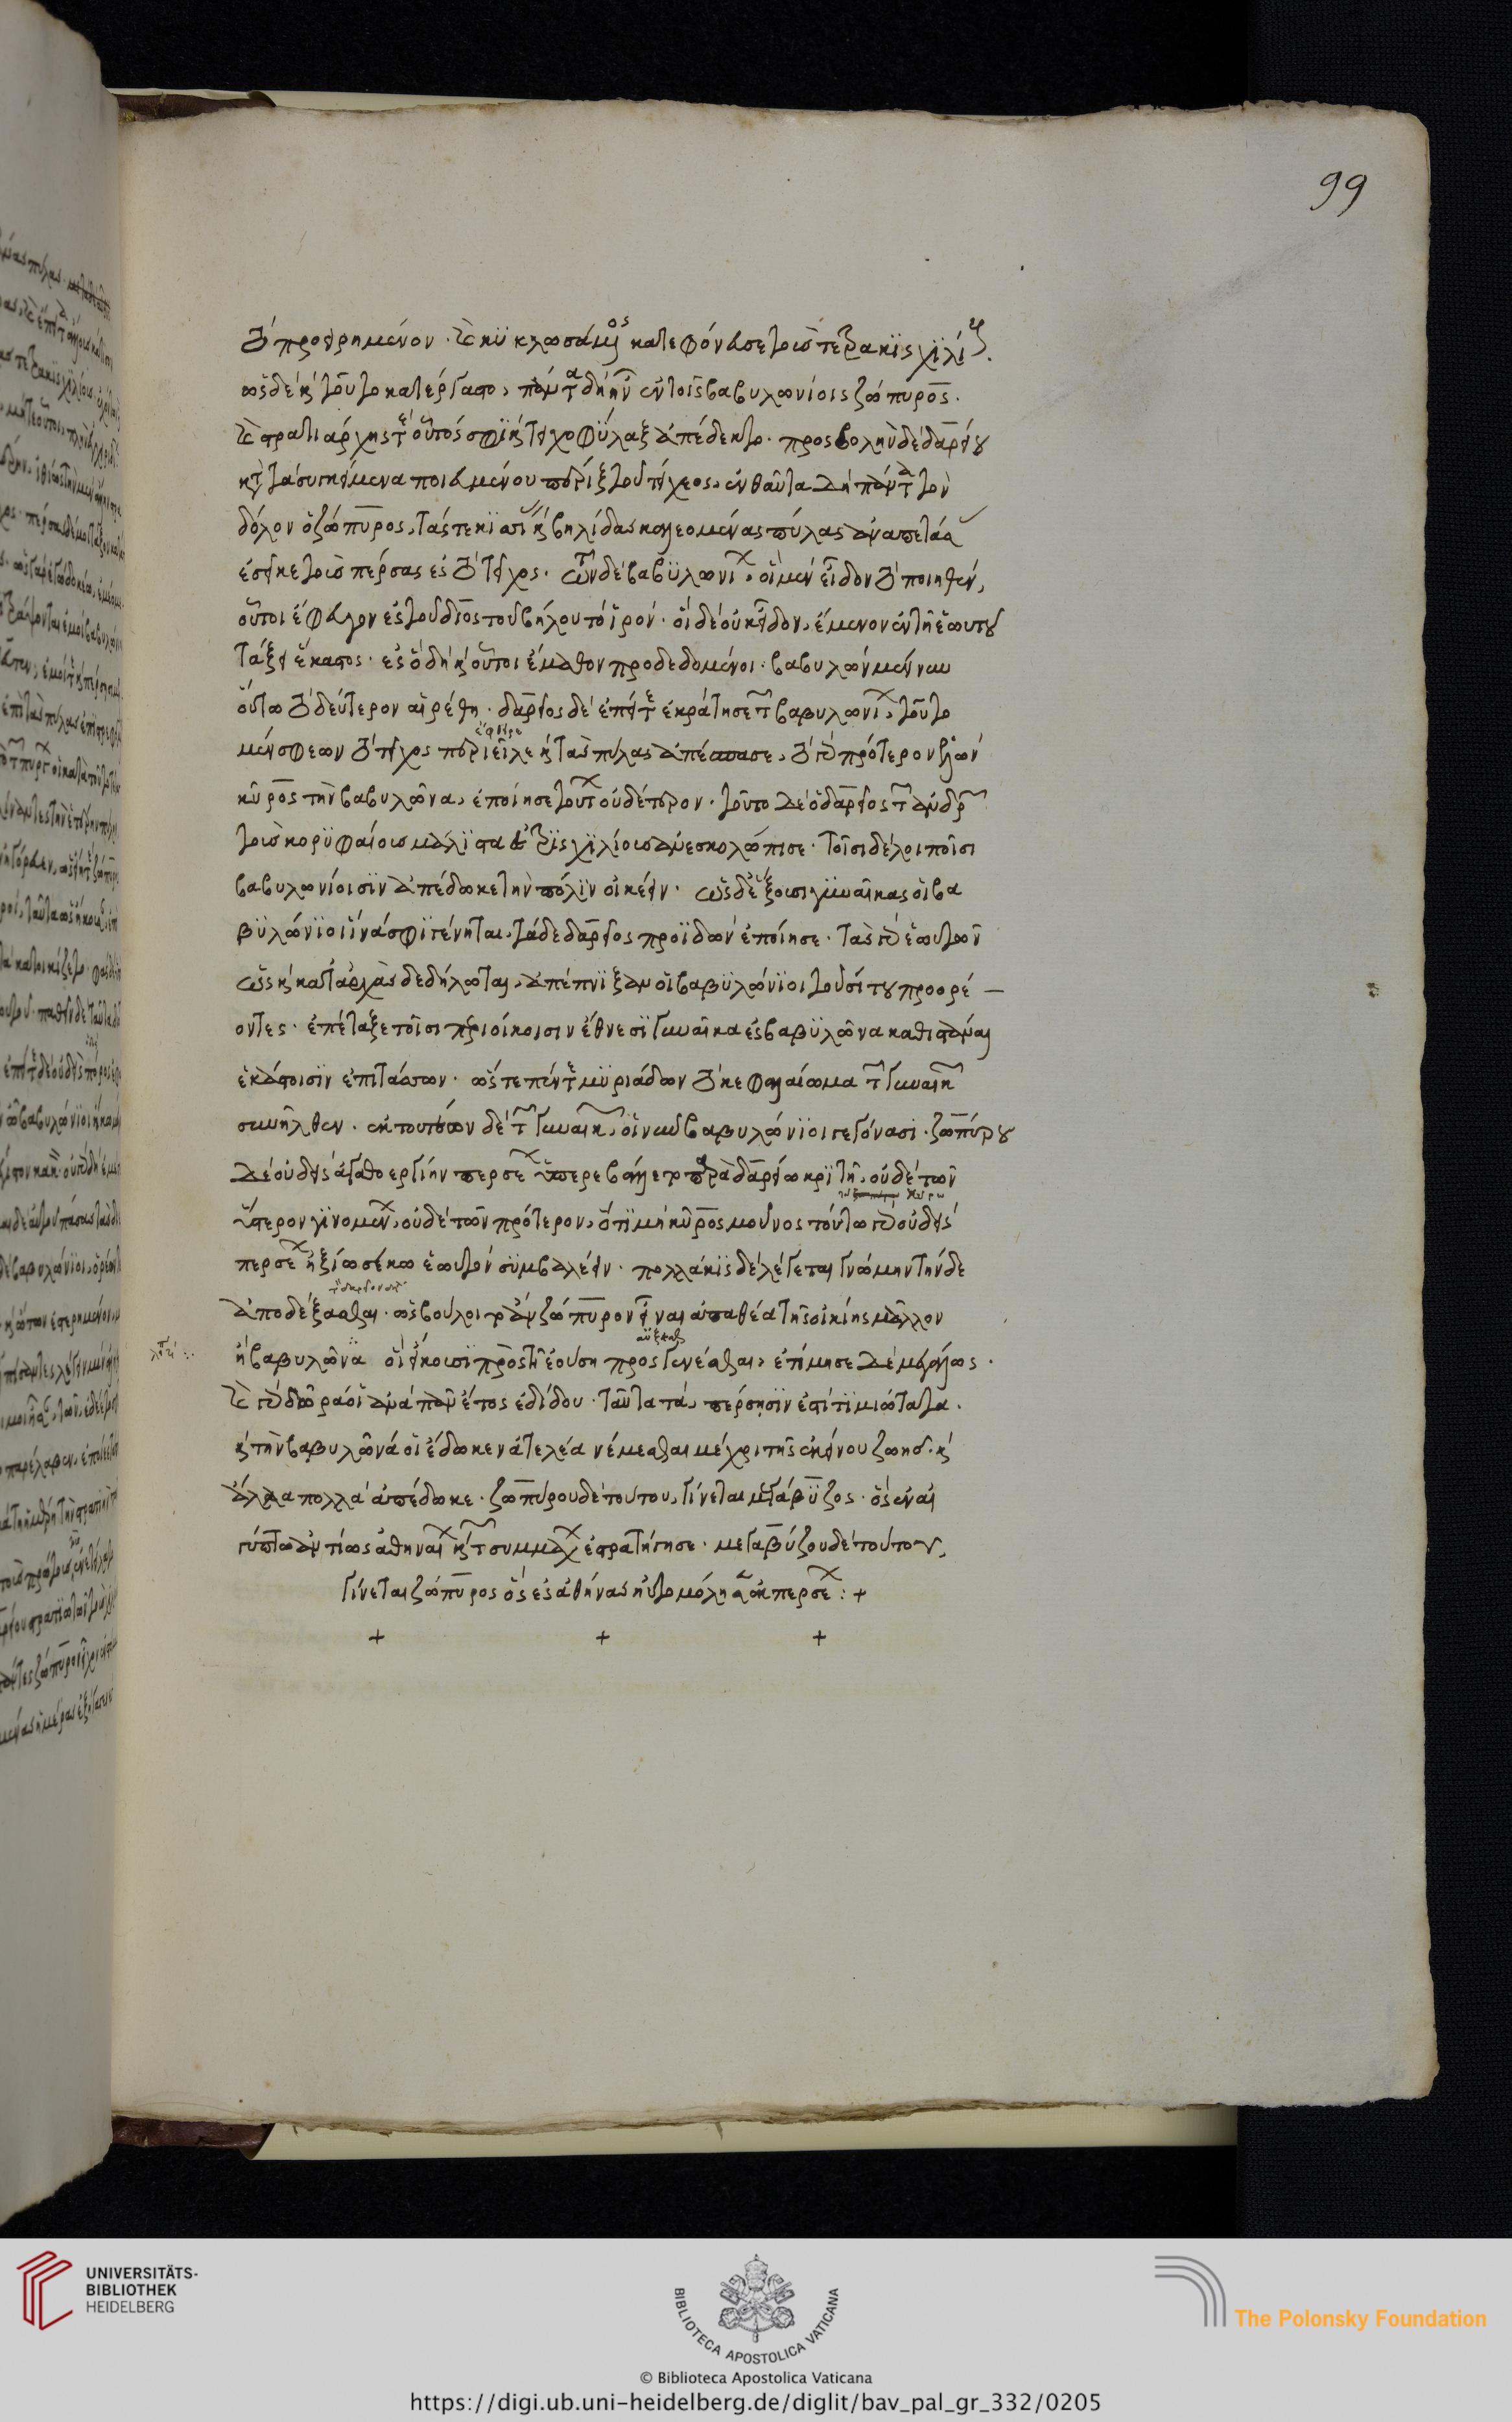 99
τὸ προειρημένον. καὶ κυκλωσάμενος κατεφόνευσε τοὺς τετρακισχιλίους.
ὡς δὲ καὶ τοῦτο κατέργαστο, πάντα δὴ ἦν ἐν τοῖσι βαβυλωνίοισι ζώπυρος.
καὶ στρατιάρχης τε οὗτός σφι καὶ τειχοφύλαξ ἀπέδεκτο. προσβολὴν δὲ δαρείου
κατὰ τὰ συγκείμενα ποιευμένου πέριξ τοῦ τείχεος, ἐνθαῦτα δὴ πάντα τὸν
δόλον ὁ ζώπυρος, τάς τε κισσίας καὶ βηλίδας καλεομένας πύλας ἀναπετάσας
ἐσῆκε τοὺς πέρσας ἐς τὸ τεῖχος. τῶν δὲ βαβυλωνίων, οἳ μὲν εἶδον τὸ ποιηθέν,
οὗτοι ἔφευγον ἐς τοῦ διὸς τοῦ βήλου τὸ ἱρόν. οἳ δὲ οὐκ εἶδον, ἔμενον ἐν τῇ ἑωυτοῦ
τάξει ἕκαστος. ἐς ὃ δὴ καὶ οὗτοι ἔμαθον προδεδομένοι. βαβυλὼν μέν νυν
οὕτω τὸ δεύτερον αἱρέθη. δαρεῖος δὲ ἐπείτε ἐκράτησε τῶν βαβυλωνίων, τοῦτο
μέν σφεων τὸ τεῖχος περιεῖλε καὶ τὰς πύλας ἀπέσπασε, τὸ γὰρ πρότερον ἑλὼν
κῦρος τὴν βαβυλῶνα, ἐποίησε τούτων οὐδέτερον. τοῦτο δὲ ὁ δαρεῖος τῶν ἀνδρῶν
τοὺς κορυφαίους μάλιστα ἐς τρισχιλίους ἀνεσκολόπισε. τοῖσι δὲ λοιποῖσι
βαβυλωνίοισιν ἀπέδωκε τὴν πόλιν οἰκέειν. ὡς δὲ ἕξουσι γυναῖκας οἱ βα
βυλώνιοι ἵνα σφι γένηται, τάδε δαρεῖος προϊδὼν ἐποίησε. τὰς γὰρ ἑωυτῶν
ὡς καὶ κατ' ἀρχὰς δεδήλωται, ἀπέπνιξαν οἱ βαβυλώνιοι τοῦ σίτου προορέ
οντες. ἐπέταξε τοῖσι περιοίκοισιν ἔθνεσι γυναῖκα ἐς βαβυλῶνα κατιστάναι
ἑκάστοισιν ἐπιτάσσων. ὥστε πέντε μυριάδων τὸ κεφαλαίωμα τῶν γυναικῶν
συνῆλθεν. ἐκ τουτέων δὲ τῶν γυναικῶν, οἱ νῦν βαβυλώνιοι γεγόνασι. ζωπύρου
δὲ οὐδεὶς ἀγαθοεργίην περσέων ὑπερεβάλετο παρὰ δαρείω κριτῇ, οὐδὲ τῶν
ὕστερον γινομένων, οὐδὲ τῶν πρότερον, ὅτι μὴ κῦρος μοῦνος τούτω γὰρ οὐδεὶς
περσέων ἠξίωσέ κω ἑωυτὸν συμβαλέειν. πολλάκις δὲ λέγεται γνώμην τήνδε
ἀποδέξασθαι. ὡς βούλοιτο ἂν ζώπυρον εἶναι ἀπαθέα τῆς ἀεικίης μᾶλλον
ἢ βαβυλῶνα οἱ εἴκοσι πρὸς τῇ ἐούσῃ προσγενέσθαι, ἐτίμησε δέ μεγάλως.
καὶ γὰρ δῶρά οἱ ἀνὰ πᾶν ἔτος ἐδίδου. ταῦτα τὰ πέρσῃσίν ἐστι τιμιώτατα.
καὶ τὴν βαβυλῶνά οἱ ἔδωκεν ἀτελέα νέμεσθαι μέχρι τῆς ἐκείνου ζωῆς. καὶ
ἄλλα πολλὰ ἀπέδωκε. ζωπύρου δὲ τούτου, γίνεται μεγάβυζος. ὃς ἐν αἰ
γύπτω ἀντίως ἀθηναίων καὶ τῶν συμμάχων ἐστρατήγησε. μεγαβύζου δὲ τούτου,
γίνεται ζώπυρος ὃς ἐς ἀθήνας ηὐτομόλησε ἐκ περσέων: +
+ + +
UNIVERSITÄTS-
BIBLIOTHEK
HEIDELBERG
BIBLIOTECA APOSTOLICA VATICANA
The Polonsky Foundation
© Biblioteca Apostolica Vaticana
https://digi.ub.uni-heidelberg.de/diglit/bav_pal_gr_332/0205